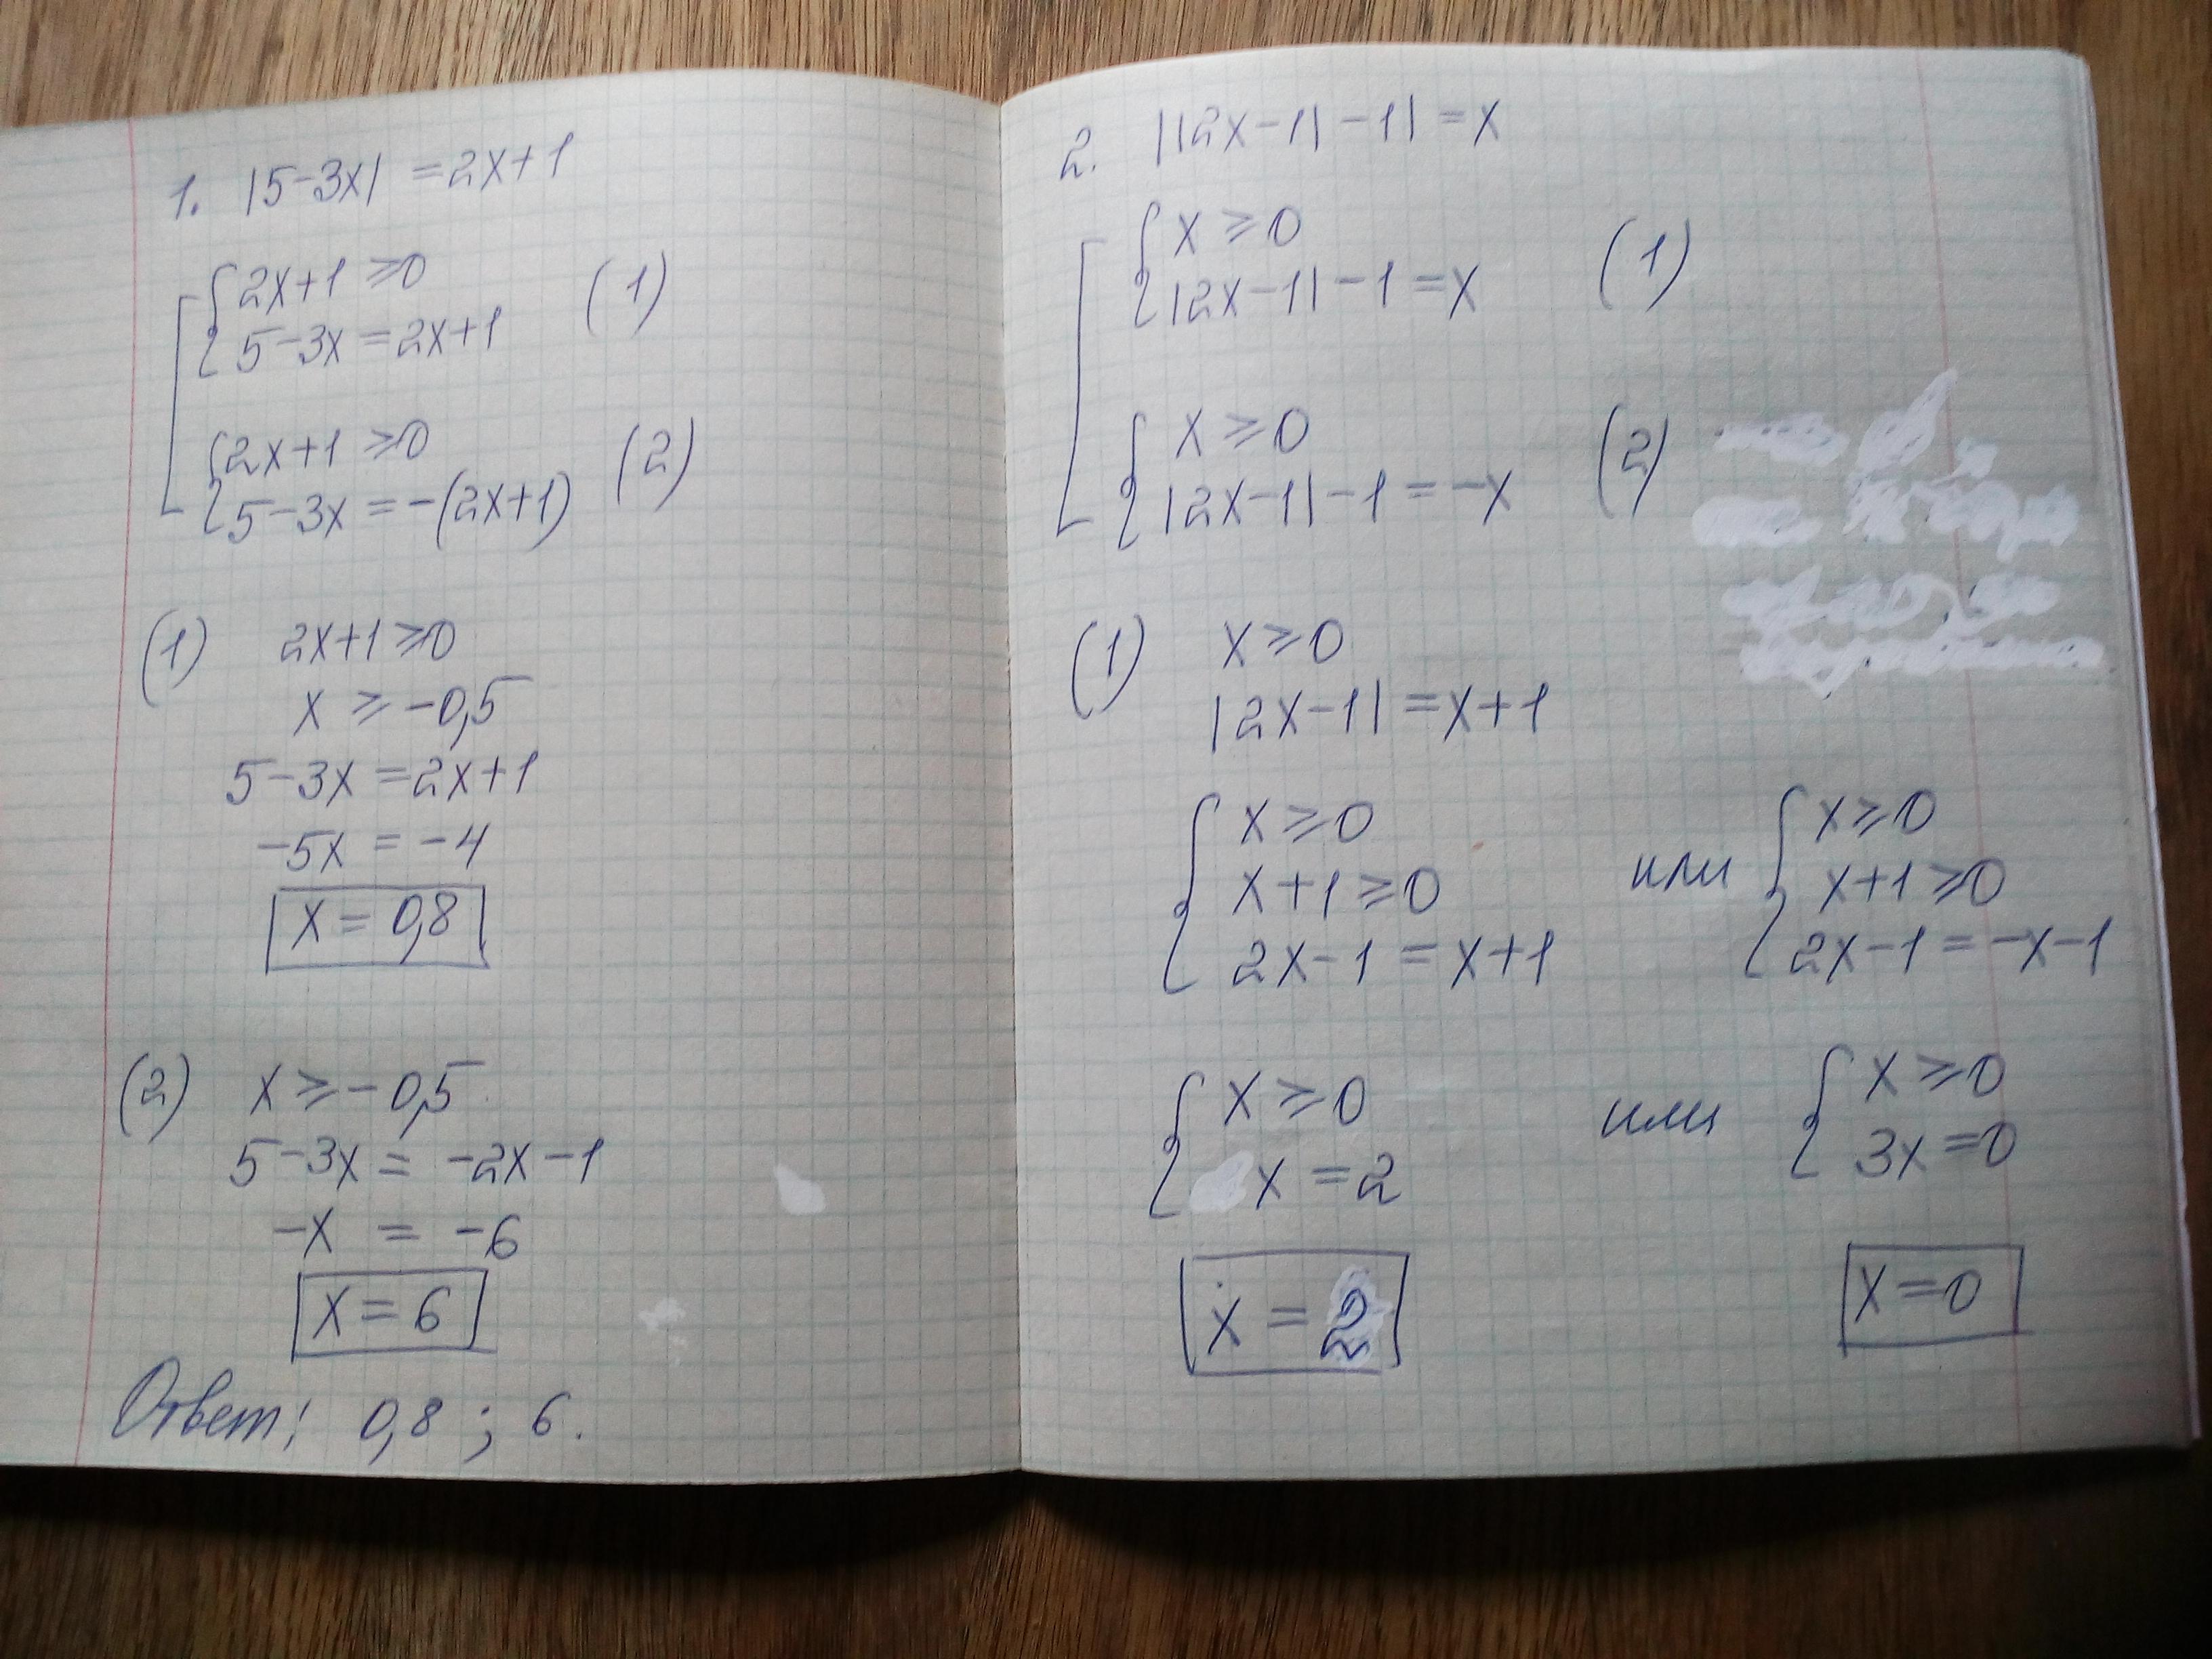 1. |5-3x| = 2x+1
2x+1 ⩾ 0
5-3x = 2x+1 (1)
2x+1 ⩾ 0
5-3x = -(2x+1) (2)
(1) 2x+1 ⩾ 0
x ⩾ -0,5
5-3x = 2x+1
-5x = -4
x = 0,8
(2) x ⩾ -0,5
5-3x = -2x-1
-x = -6
x = 6
Ответ: 0,8 ; 6.
2. ||2x-1|-1| = x
x ⩾ 0
|2x-1|-1 = x (1)
x ⩾ 0
|2x-1|-1 = -x (2)
(1) x ⩾ 0
|2x-1| = x+1
x ⩾ 0 x ⩾ 0
x+1 ⩾ 0 или x+1 ⩾ 0
2x-1 = x+1 2x-1 = -x-1
x ⩾ 0 или x ⩾ 0
x = 2 3x = 0
x = 2 x = 0